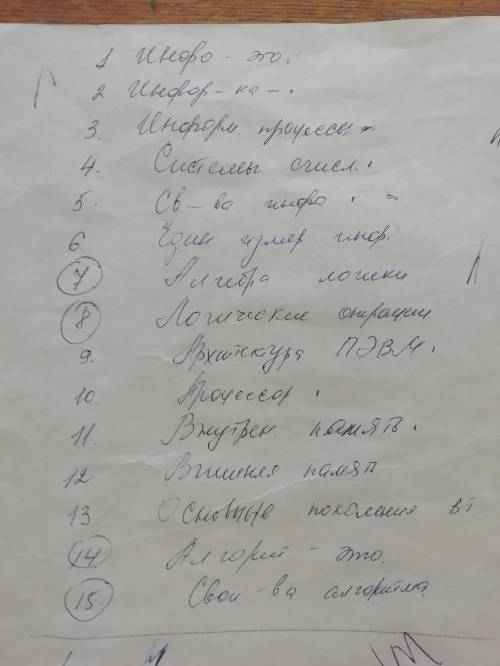 1 Инфо - это.
2 Инфор-ка -.
3. Информ. процессы -
4. Системы счисл.
5. Св-ва инфо. -
6. Един измер инф.
7 Алгебра логики
8 Логические операции
9. Архитектура ПЭВМ.
10. Процессор.
11. Внутрен. память.
12 Внешняя память
13. Основные поколения ВТ
14. Алгорит - это.
15. Свой-ва алгоритма